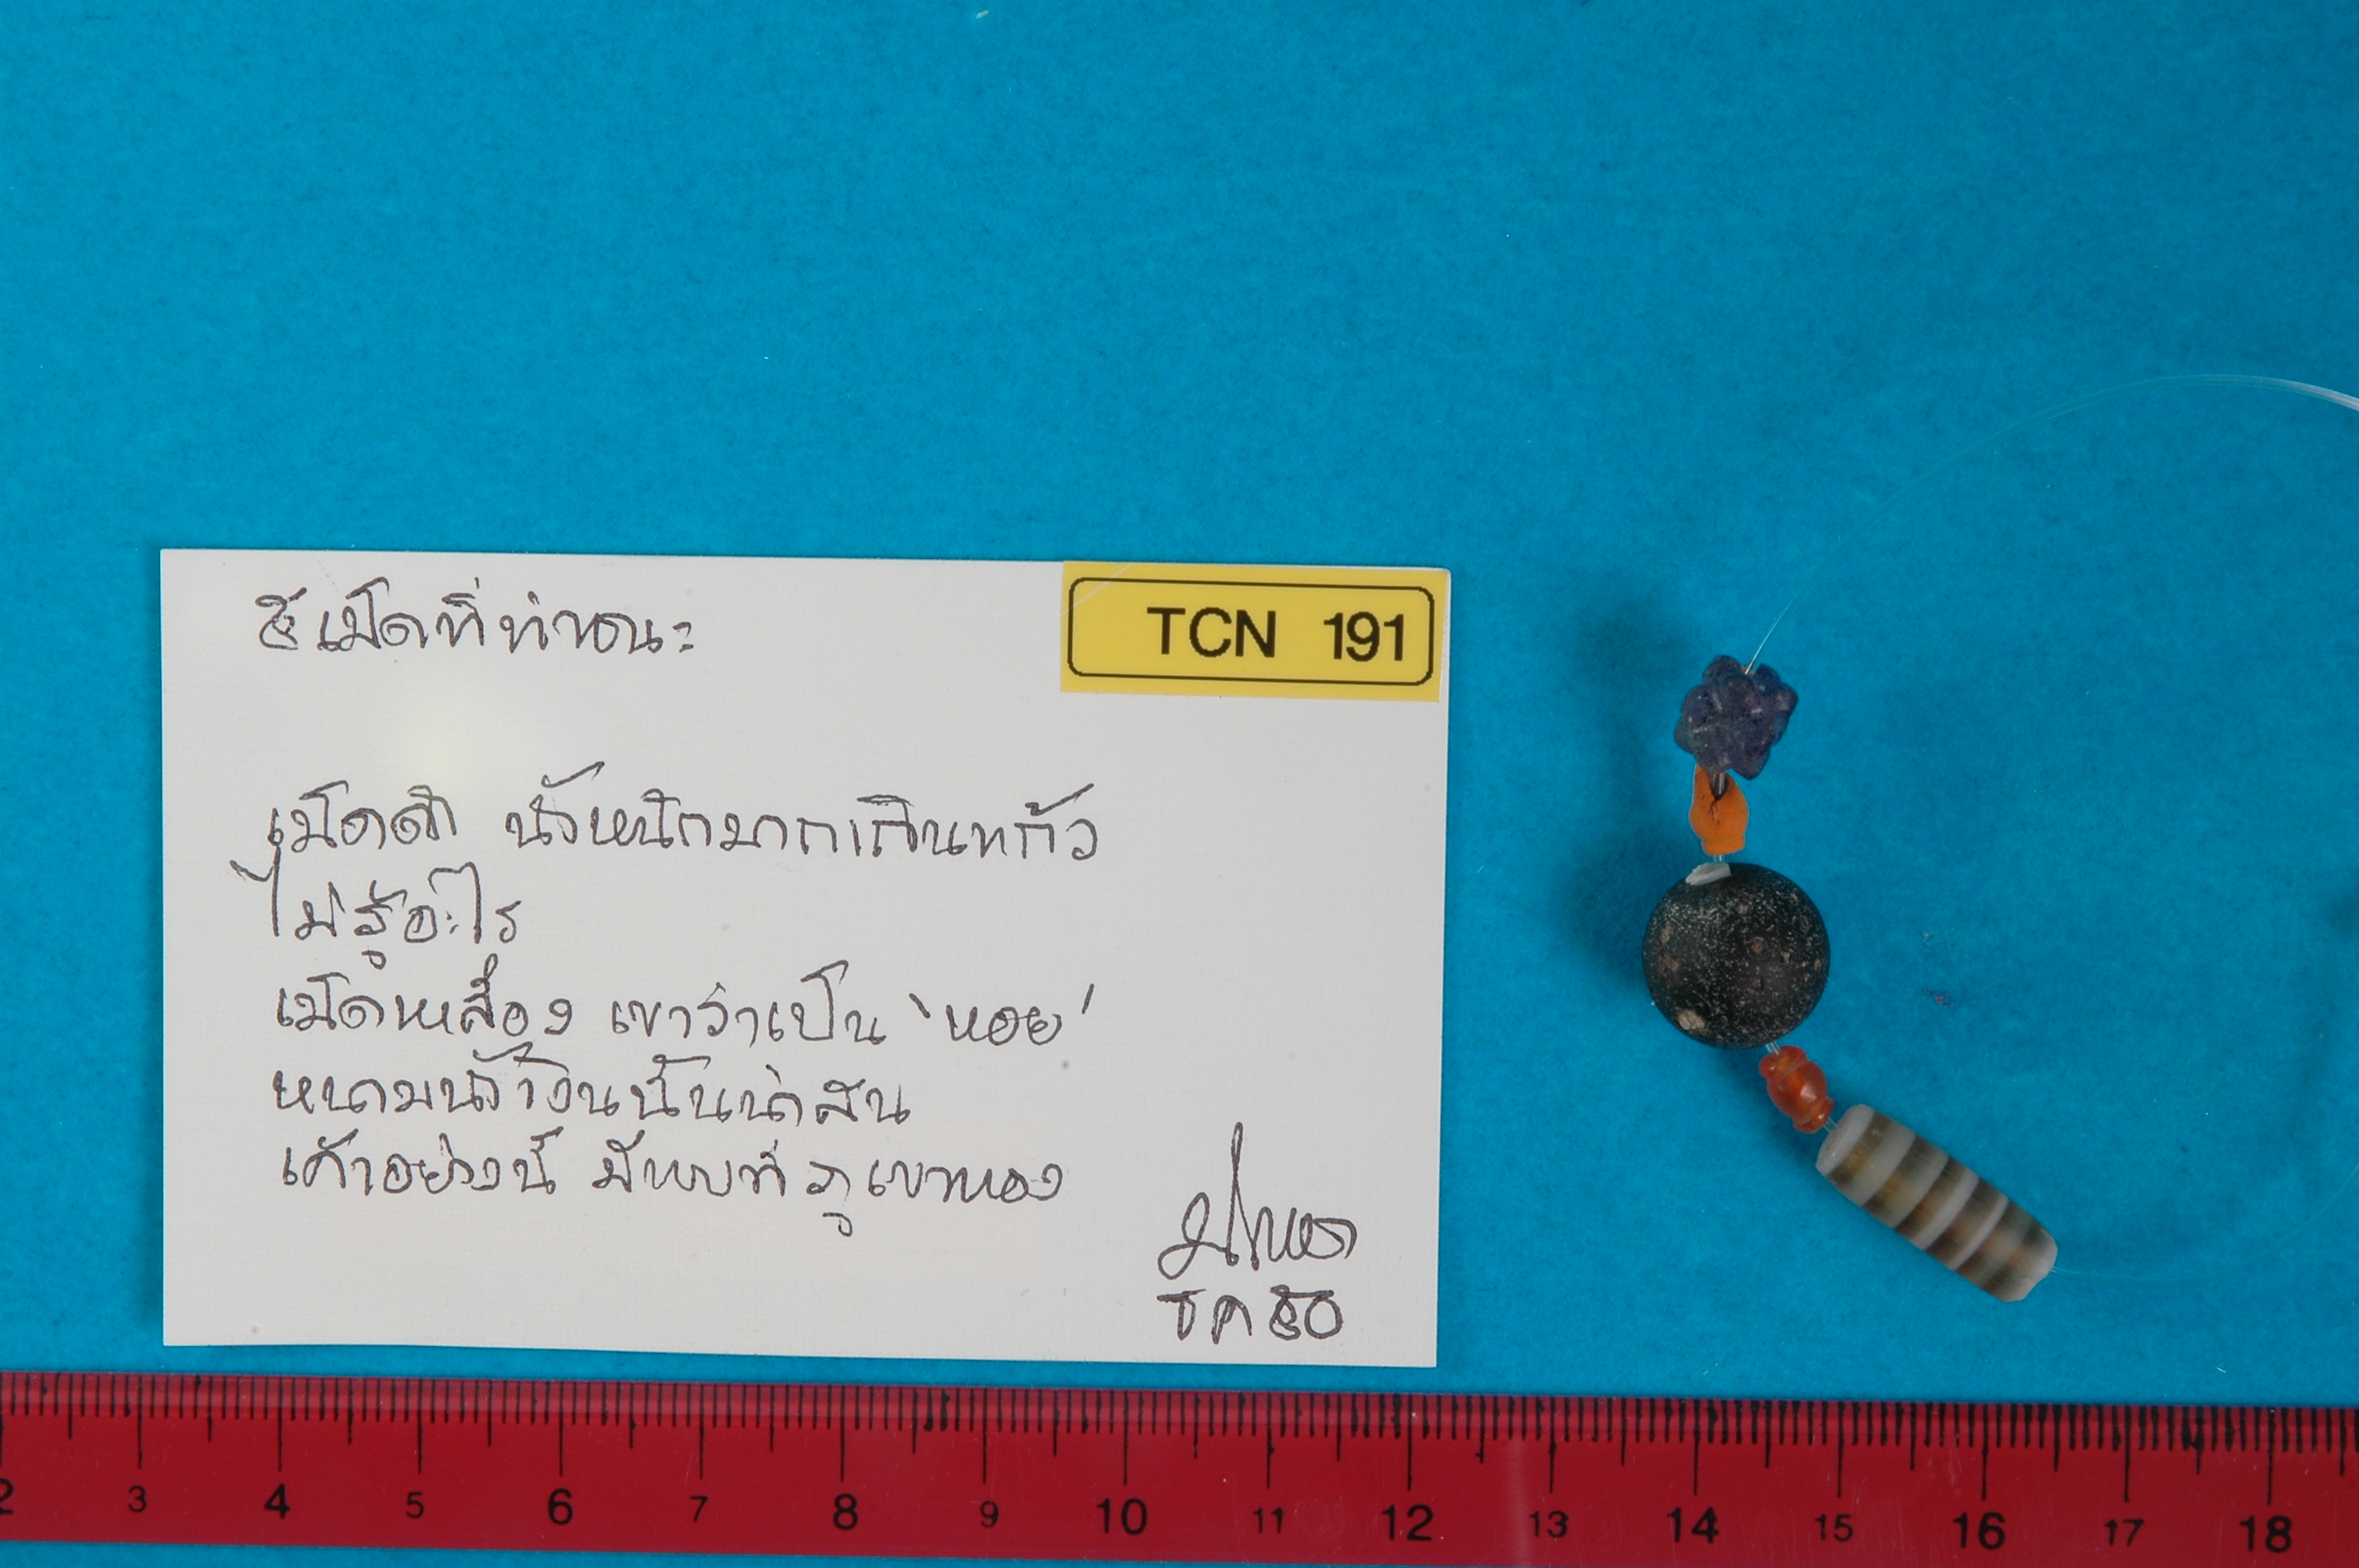 ๕ เม็ดที่ท่าชนะ
TCN 191
เม็ดดำ น้ำหนักมากเกินแก้ว
ไม่รู้อะไร
เม็ดเหลือง เขาว่าเป็น 'หอย'
หนามน้ำเงินนั้นน่าสน
เค้าอย่างนี้ มีพบที่ภูเขาทอง
ธค ๕๐
2 3 4 5 6 7 8 9 10 11 12 13 14 15 16 17 18